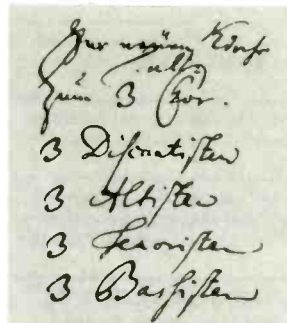 Zur neüen Kirche
Zum 3 Cor.
3 Discantisten
3 Altisten
3 Tenoristen
3 Baßisten